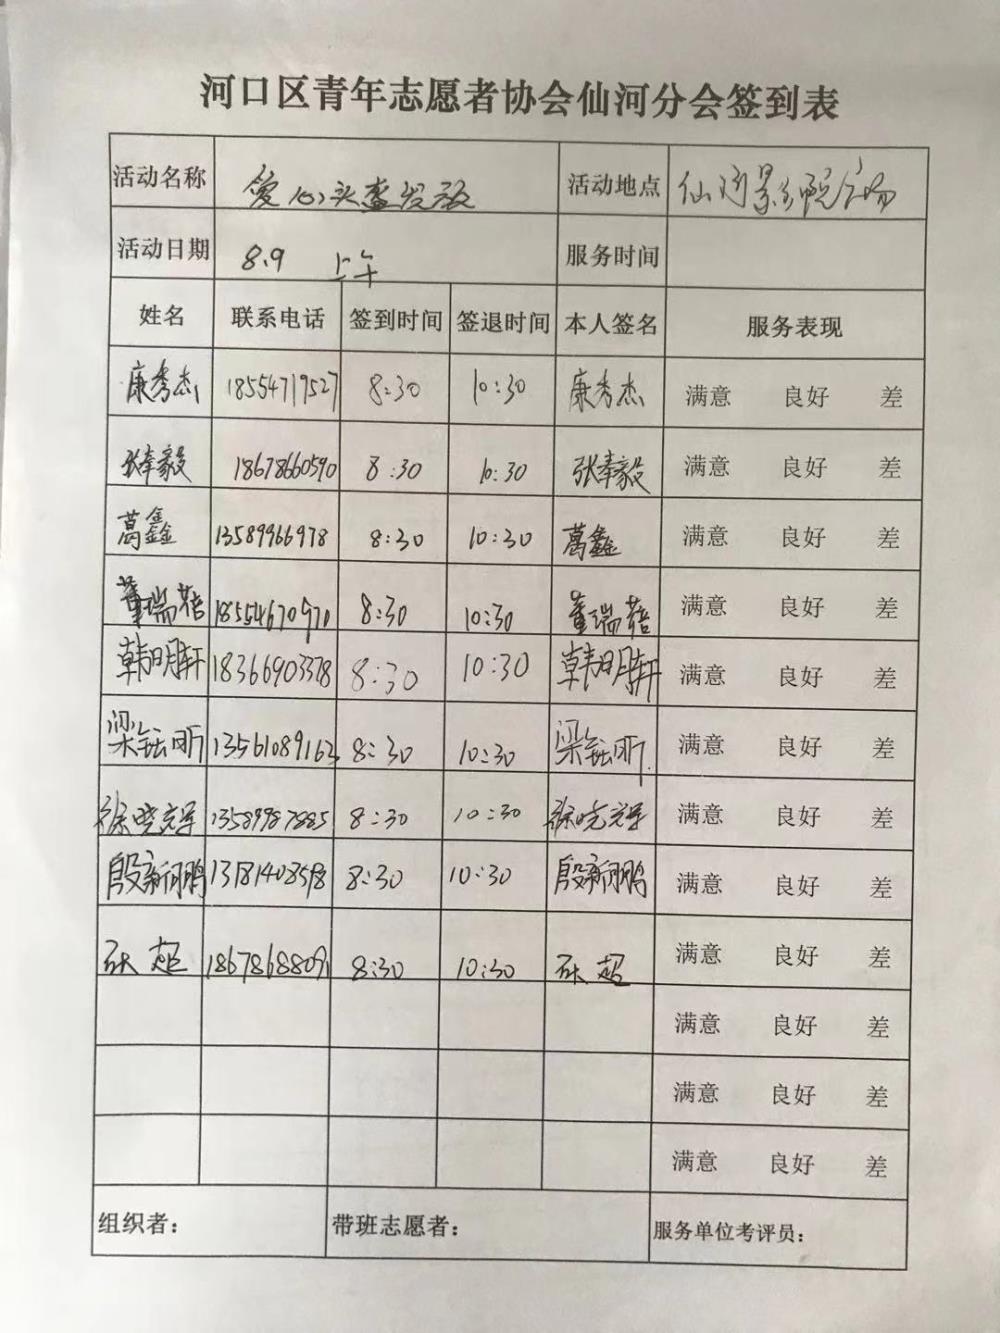 河口区青年志愿者协会仙河分会签到表
活动名称 爱心头盔发放 活动地点 仙河影剧院广场
活动日期 8.9 上午 服务时间
姓名 联系电话 签到时间 签退时间 本人签名 服务表现
康秀杰 18554719527 8:30 10:30 康秀杰 满意 良好 差
张奉毅 18678660590 8:30 10:30 张奉毅 满意 良好 差
葛鑫 13589966978 8:30 10:30 葛鑫 满意 良好 差
董瑞蓓 18554670970 8:30 10:30 董瑞蓓 满意 良好 差
韩明轩 18366903378 8:30 10:30 韩明轩 满意 良好 差
梁钰昕 13561089163 8:30 10:30 梁钰昕 满意 良好 差
徐晓辉 13589987885 8:30 10:30 徐晓辉 满意 良好 差
殷新鹏 8:30 10:30 殷新鹏 满意 良好 差
张超 18678688091 8:30 10:30 张超 满意 良好 差
满意 良好 差
满意 良好 差
满意 良好 差
组织者： 带班志愿者： 服务单位考评员：